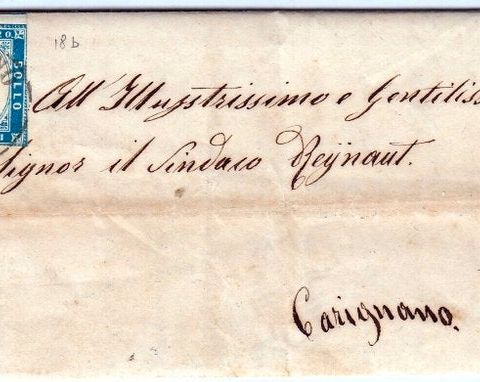 18 b
20
BOLLO
All' Illustrissimo e Gentiliss
Signor il Sindaco Reÿnaut.
Carignano.